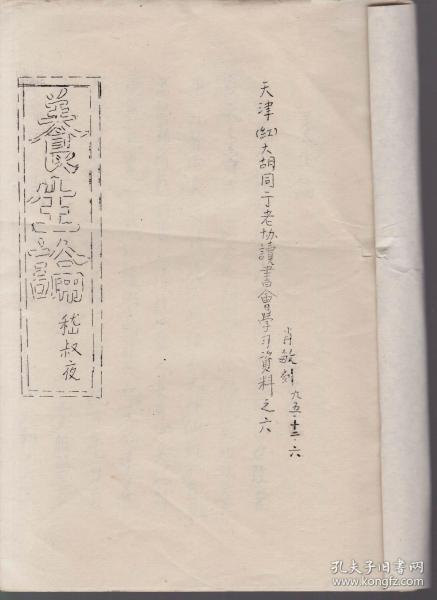 養生論
嵇叔夜
天津(紅)大胡同丁老协讀書會學习資料之六
肖敏刻 九五·十二·六
孔夫子旧书网
www.kongfz.com